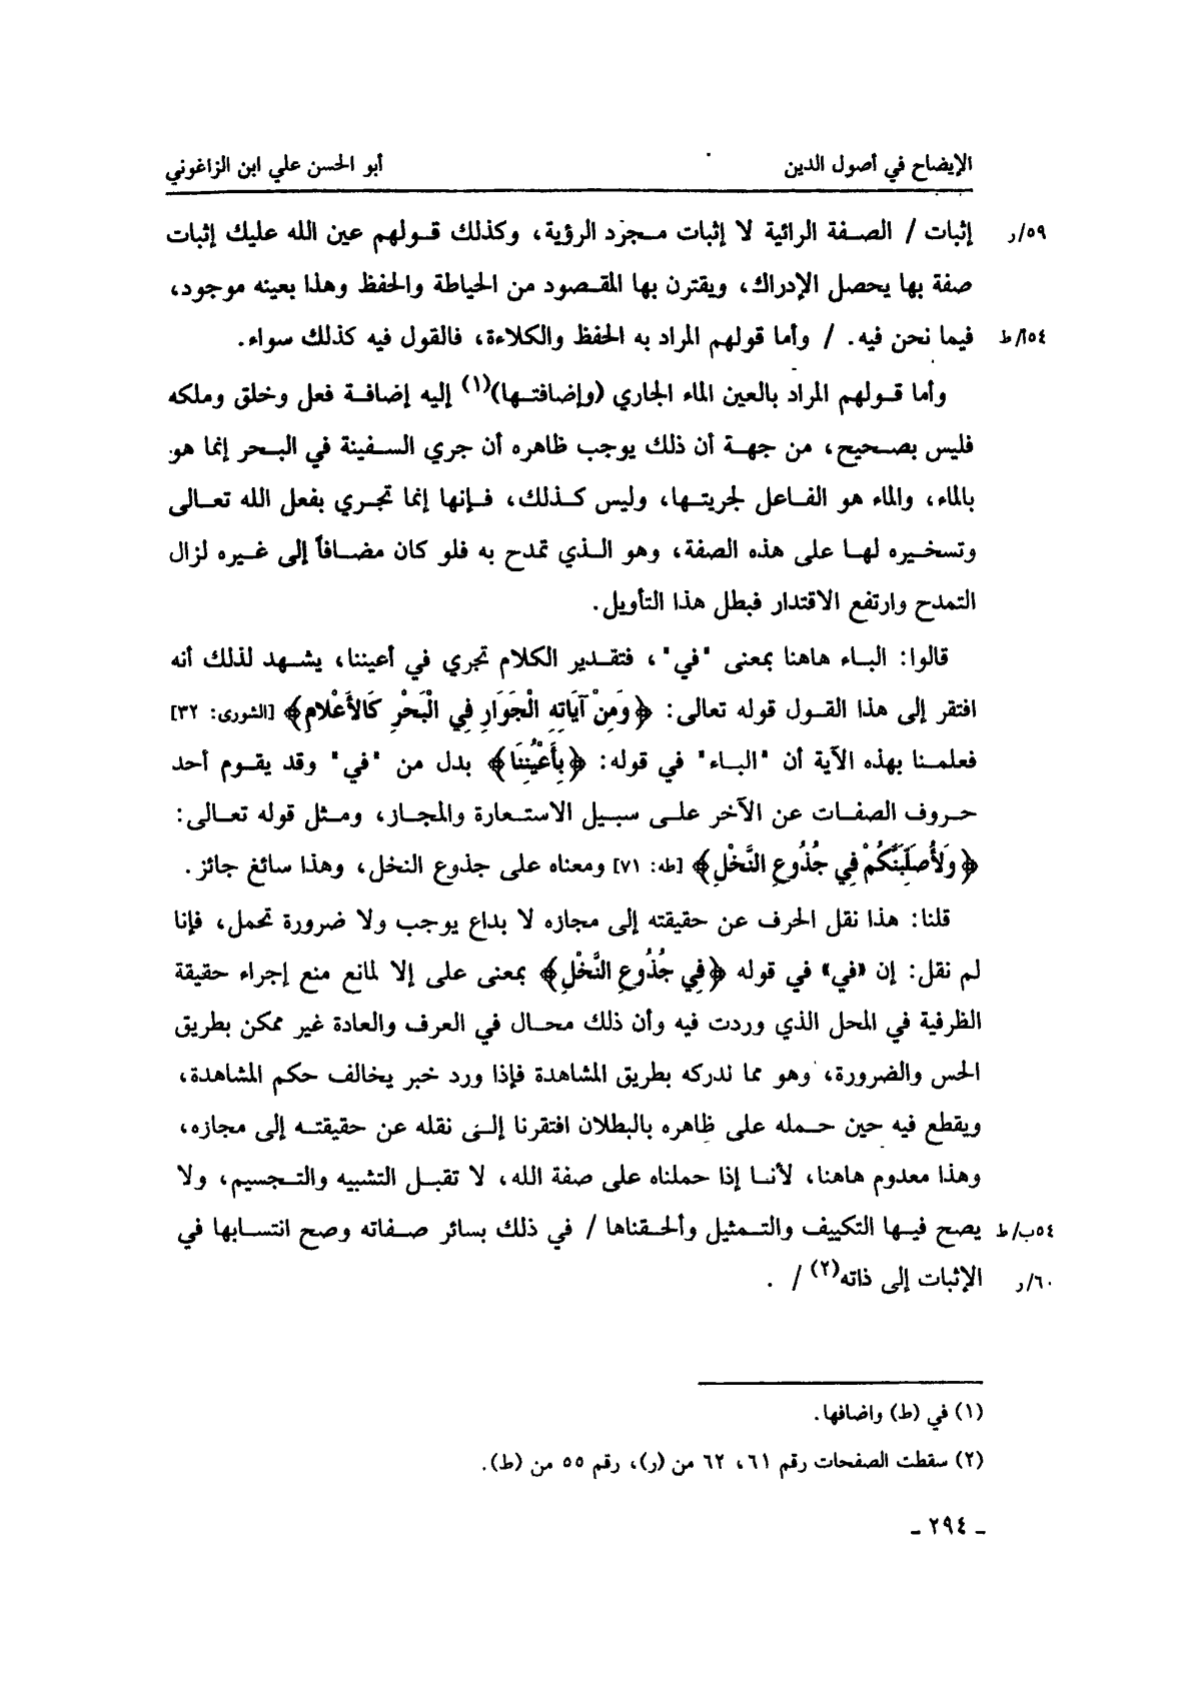 الإيضاح في أصول الدين
أبو الحسن علي ابن الزاغوني
٥٩/ر إثبات / الصفة الرائية لا إثبات مجرّد الرؤية، وكذلك قولهم عين الله عليك إثبات
صفة بها يحصل الإدراك، ويقترن بها المقصود من الحياطة والحفظ وهذا بعينه موجود،
٥٤أ/ط فيما نحن فيه. / وأما قولهم المراد به الحفظ والكلاءة، فالقول فيه كذلك سواء.
وأما قولهم المراد بالعين الماء الجاري (وإضافتها)(١) إليه إضافة فعل وخلق وملكه
فليس بصحيح، من جهة أن ذلك يوجب ظاهره أن جري السفينة في البحر إنما هو
بالماء، والماء هو الفاعل لجريتها، وليس كذلك، فإنها إنما تجري بفعل الله تعالى
وتسخيره لها على هذه الصفة، وهو الذي تمدح به فلو كان مضافاً إلى غيره لزال
التمدح وارتفع الاقتدار فبطل هذا التأويل.
قالوا: الباء هاهنا بمعنى "في"، فتقدير الكلام تجري في أعيننا، يشهد لذلك أنه
افتقر إلى هذا القول قوله تعالى: ﴿وَمِنْ آيَاتِهِ الْجَوَارِ فِي الْبَحْرِ كَالأَعْلامِ﴾ [الشورى: ٣٢]
فعلمنا بهذه الآية أن "الباء" في قوله: ﴿بِأَعْيُنِنَا﴾ بدل من "في" وقد يقوم أحد
حروف الصفات عن الآخر على سبيل الاستعارة والمجاز، ومثل قوله تعالى:
﴿وَلأُصَلِّبَنَّكُمْ فِي جُذُوعِ النَّخْلِ﴾ [طه: ٧١] ومعناه على جذوع النخل، وهذا سائغ جائز.
قلنا: هذا نقل الحرف عن حقيقته إلى مجازه لا بداع يوجب ولا ضرورة تحمل، فإنا
لم نقل: إن «في» في قوله ﴿فِي جُذُوعِ النَّخْلِ﴾ بمعنى على إلا لمانع منع إجراء حقيقة
الظرفية في المحل الذي وردت فيه وأن ذلك محال في العرف والعادة غير ممكن بطريق
الحس والضرورة، وهو مما ندركه بطريق المشاهدة فإذا ورد خبر يخالف حكم المشاهدة،
ويقطع فيه حين حمله على ظاهره بالبطلان افتقرنا إلى نقله عن حقيقته إلى مجازه،
وهذا معدوم هاهنا، لأنا إذا حملناه على صفة الله، لا تقبل التشبيه والتجسيم، ولا
٥٤ب/ط يصح فيها التكييف والتمثيل وألحقناها / في ذلك بسائر صفاته وصح انتسابها في
٦٠/ر الإثبات إلى ذاته(٢) / .
(١) في (ط) واضافها.
(٢) سقطت الصفحات رقم ٦١، ٦٢ من (ر)، رقم ٥٥ من (ط).
ـ ٢٩٤ ـ